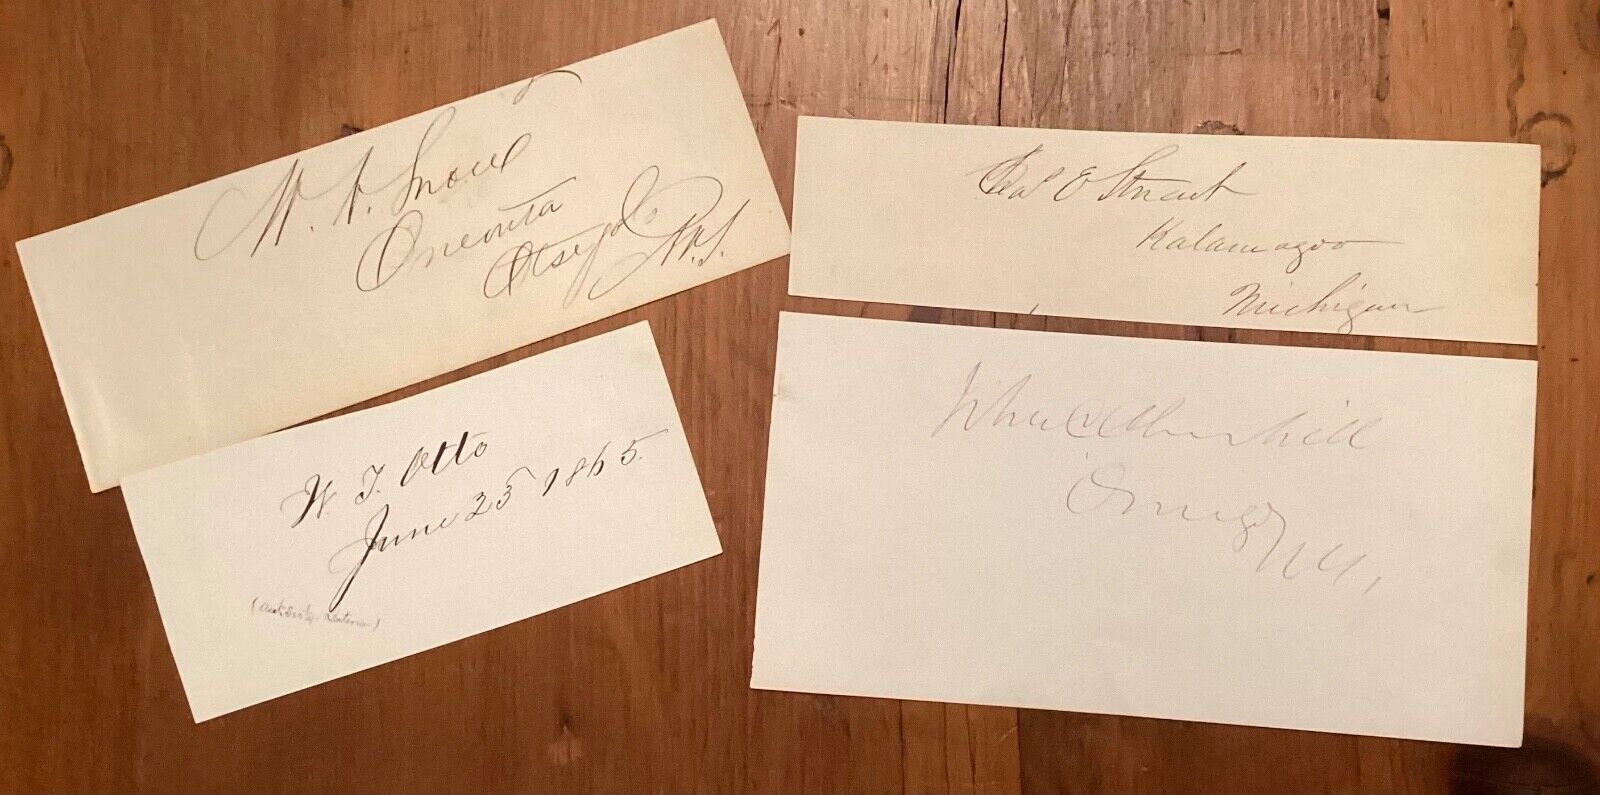 W. W. Snow
Oneonta
Otsego Co
N.Y.
Chas E Stuart
Kalamazoo
Michigan
W. T. Otto
June 23 1865.
John C Churchill
Oswego N.Y.